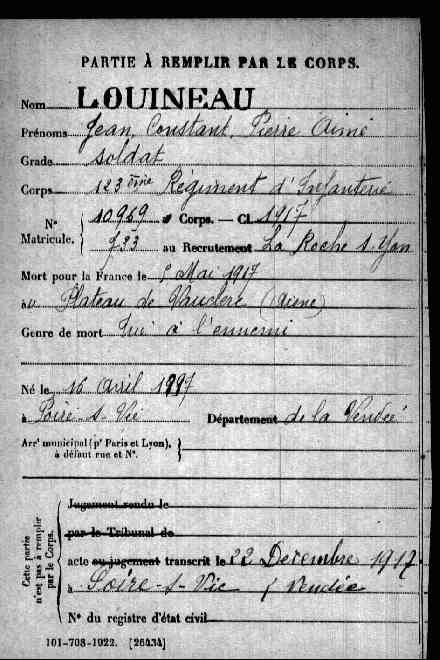 PARTIE À REMPLIR PAR LE CORPS.
Nom LOUINEAU
Prénoms Jean, Constant, Pierre Aimé
Grade soldat
Corps 123ème Régiment d'Infanterie
N° Matricule. 10969 au Corps. — Cl. 1917
733 au Recrutement La Roche s. Yon
Mort pour la France le 5 Mai 1917
au Plateau de Vauclerc (Aisne)
Genre de mort Tué à l'ennemi
Né le 16 avril 1897
à Poiré-s-Vie Département de la Vendée
Arrt municipal (pr Paris et Lyon),
à défaut rue et N°.
Cette partie
n'est pas à remplir
par le Corps.
Jugement rendu le
par le Tribunal de
acte ou jugement transcrit le 22 Décembre 1917
à Poiré-s-Vie (Vendée
N° du registre d'état civil
101-708-1922. [26434]